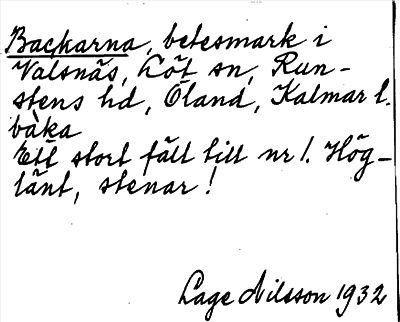 Backarna, betesmark i
Valsnäs, Löt sn, Run-
stens hd, Öland, Kalmar l.
bàka
Ett stort fält till nr 1. Hög-
länt, stenar!
Lage Nilsson 1932